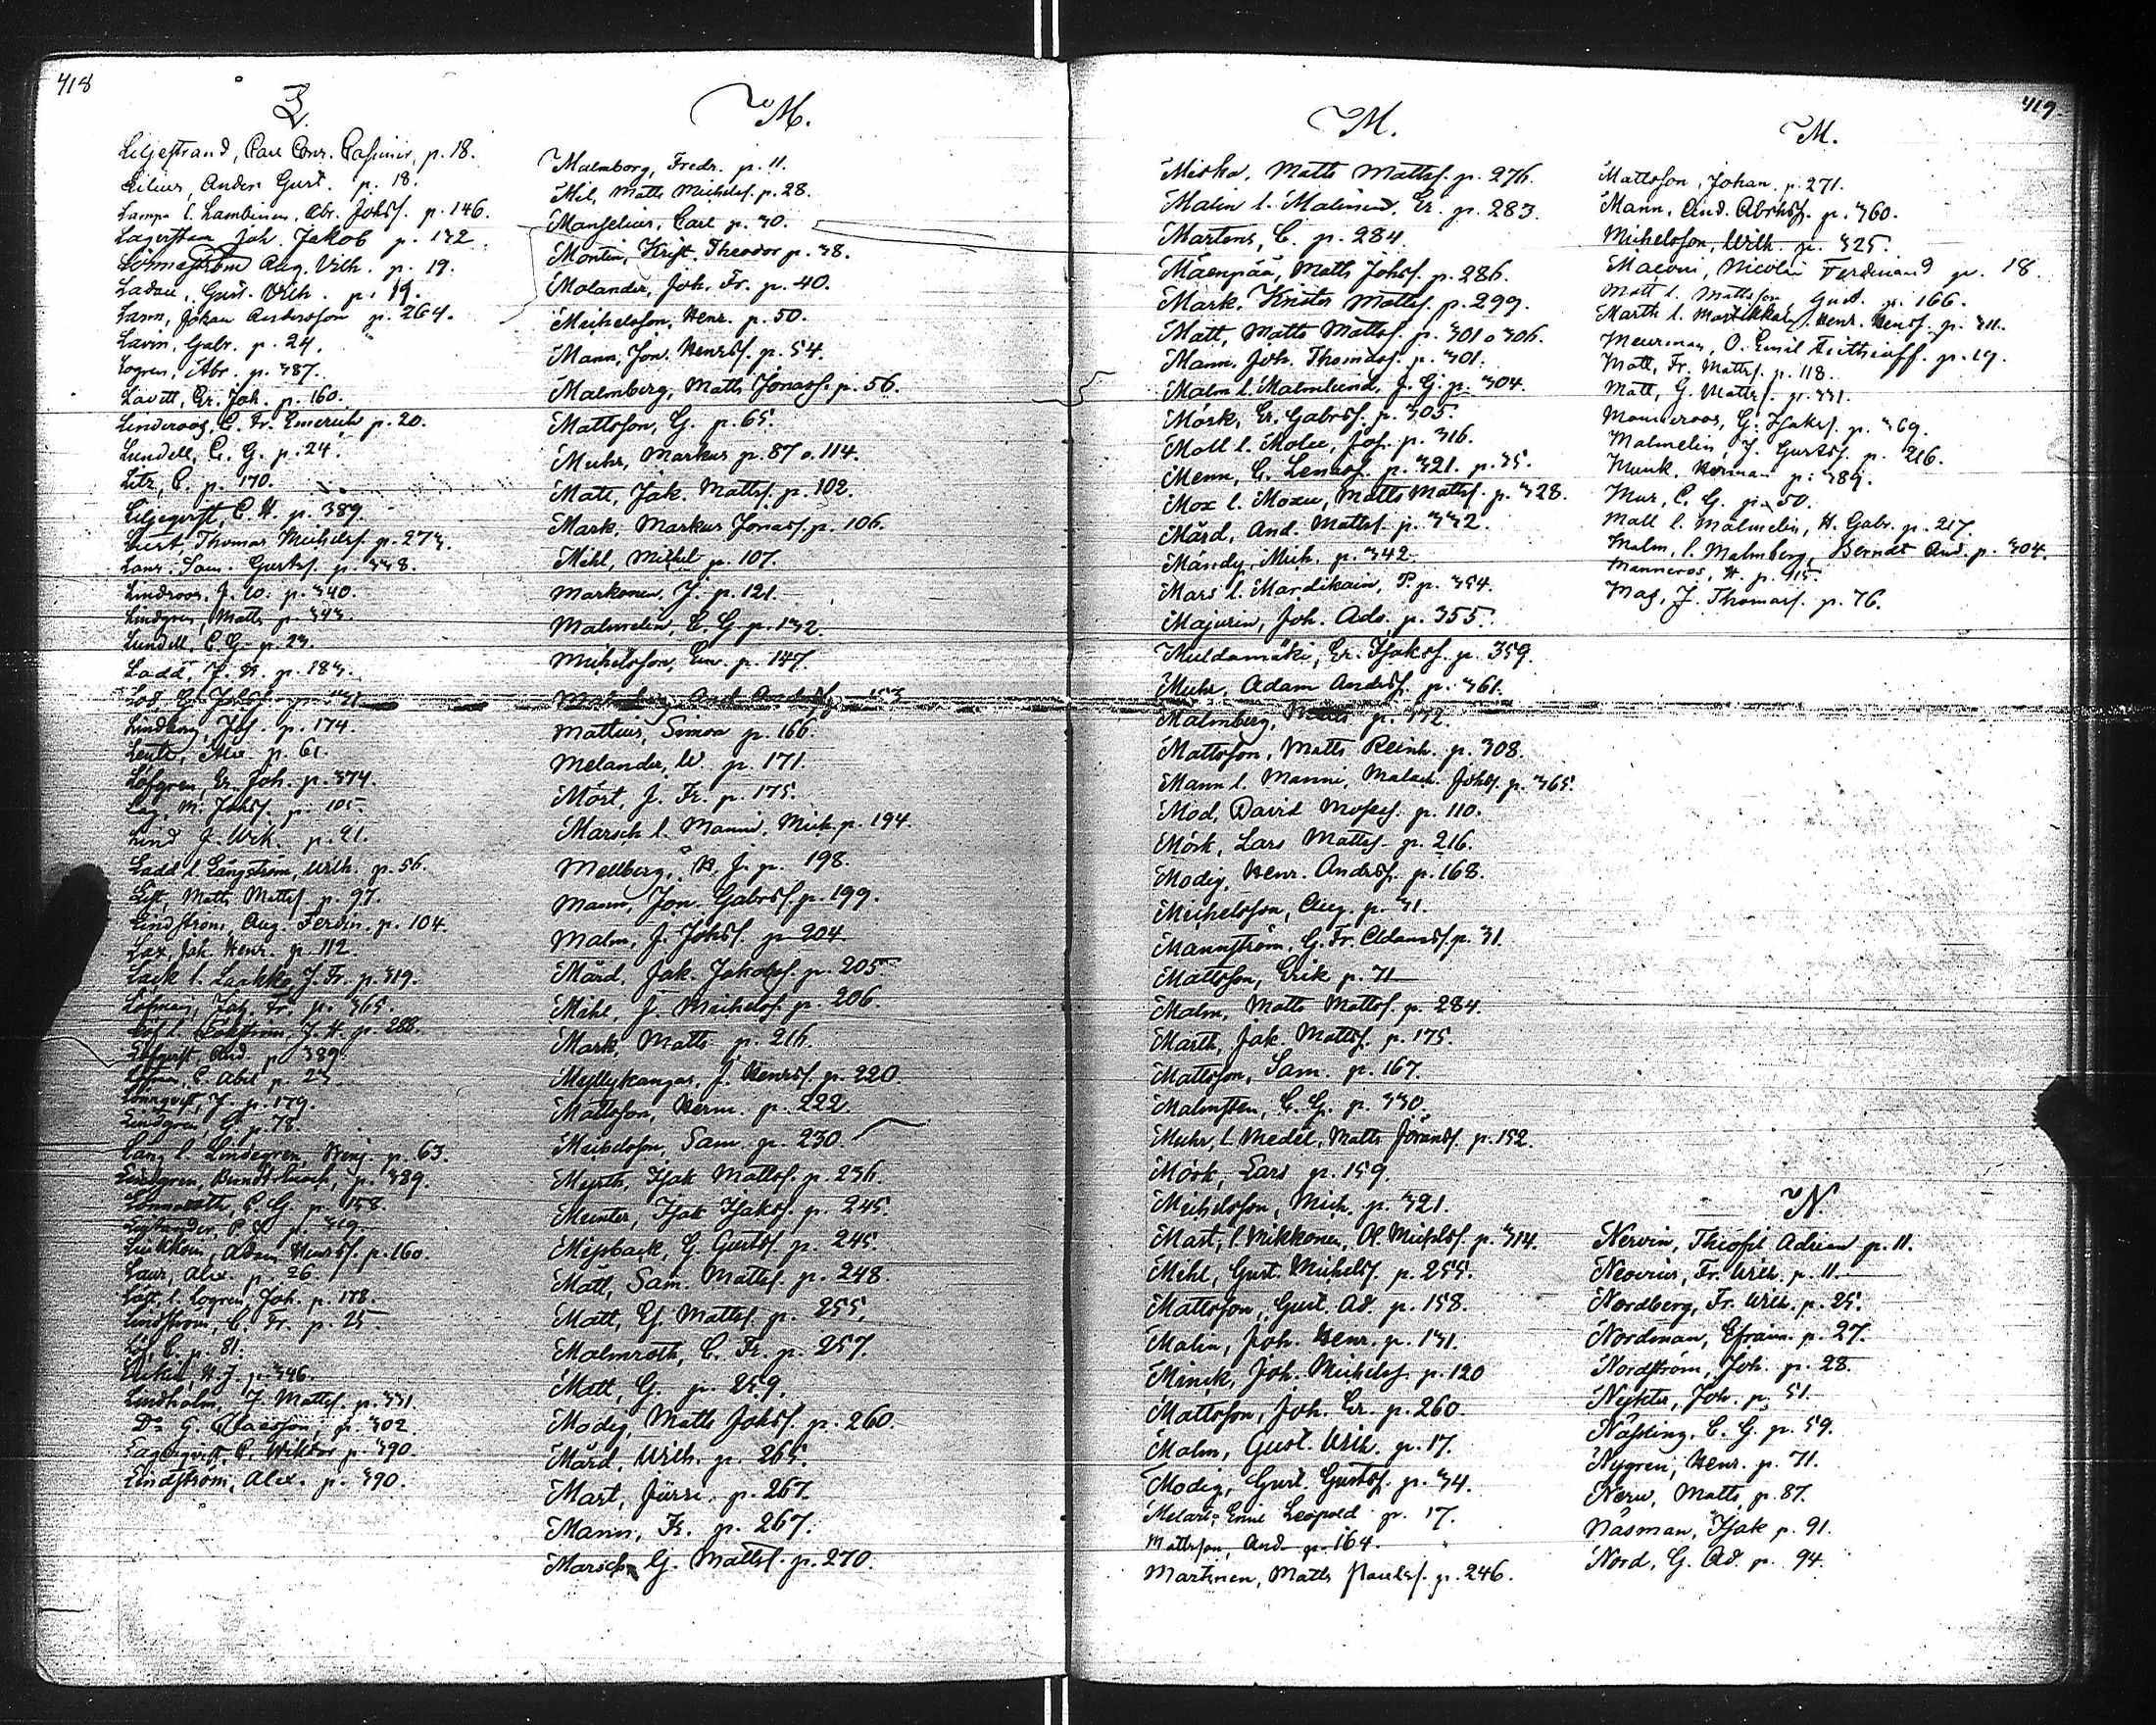 418
L.
Liljestrand, Carl Conr. Casimir, p. 18.
Lilius, Anders Gust. p. 18.
Lampa l. Lambinen, Abr. Johsf. p. 146.
Lagerstam Joh. Jakob p. 132.
Lönnström Aug. Vilh. p. 19.
Ladau, Gust. Vilh. p. 19.
Lann, Johan Andersson p. 264.
Lavin, Gabr. p. 24.
Logren, Abr. p. 387.
Lavitt, Er. Joh. p. 160.
Linderoos, C. Fr. Emerich p. 20.
Lundell, C. G. p. 24.
Litz, C. p. 170.
Liljeqvist, C. H. p. 389.
Lust, Thomas Michelsf. p. 273.
Lans, Sam. Gustsf. p. 338.
Lindroos, J. W. p. 340.
Lindgren, Matts p. 343.
Lundell, C. G. p. 23.
Ladd, J. H. p. 183.
Lindberg, p. 174.
Lentz, Alex p. 61.
Löfgren, Er. Joh. p. 374.
M. Johsf. p. 105.
Lind J. Wih. p. 21.
Ladd l. Långström, Wilh. p. 56.
List, Matts Mattsf. p. 97.
Lindström, Aug. Ferdin. p. 104.
Lax, Joh. Henr. p. 112.
Lack l. Laakko, J. Fr. p. 319.
Löfman, Joh. Fr. p. 365.
J. H. p. 288.
Löfqvist, And. p. 389.
C. Abel p. 23.
Lönnqvist, J. p. 179.
Lindgren, G. p. 78.
Lang l. Lindegren, Benj. p. 63.
Lindgren, p. 389.
Lönnroth, C. G. p. 158.
p. 319
Adam Henrsf. p. 160.
Laur, Alex. p. 26.
l. Logren, Joh. p. 178.
Lindström, C. Fr. p. 25.
Löf, C. p. 81.
H. J. p. 346.
Lindholm, J. Mattsf. p. 331
Do G. Claesson, p. 302
Lagerqvist, C. Wiktor p. 390.
Lindström, Alex. p. 390.
M.
Malmborg, Fredr. p. 11.
Mil, Matts Michelsf. p. 28.
Manselius, Carl p. 30.
Montin, Krist. Theodor p. 38.
Molander, Joh. Fr. p. 40.
Michelsson, Henr. p. 50.
Mann, Jon. Henrsf. p. 54.
Malmberg, Matts Jonass. p. 56.
Mattsson, G. p. 65.
Muhr, Markus p. 87 o. 114.
Matt, Jak. Mattsf. p. 102.
Mark, Markus Jonasf. p. 106.
Mihl, Michel p. 107.
Markonen, J. p. 121.
Malmelin, C. G. p. 132.
Michelsson, Em. p. 147.
Malmberg And. Andersf. 153
Mattius, Simon p. 166.
Melander, W. p. 171.
Mört, J. Fr. p. 175.
Marsch l. Manni, Mich. p. 194.
Mellberg, H. J. p. 198.
Mann, Jon. Gabrsf. p. 199.
Malm, J. Johsf. p. 204
Mård, Jak. Jakobsf. p. 205
Mihl, J. Michelsf. p. 206.
Mark, Matts p. 216.
Myllykangas, J. Henrsf. p. 220.
Mattsson, Herm. p. 222.
Michelsson, Sam. p. 230.
Myrth, Isak Mattsf. p. 236.
Meinter, Isak Isaksf. p. 245.
Mejsback, G. Gustsf. p. 245.
Matt, Sam. Mattsf. p. 248.
Matt, Ef. Mattsf. p. 255.
Malmroth, C. Fr. p. 257.
Matt, G. p. 259.
Modig, Matts Johsf. p. 260
Mård, Wilh. p. 265.
Mart, Jürri, p. 267.
Mann, Fr. p. 267.
Marsch, G. Mattsf. p. 270.
419.
M.
Miska, Matts Mattsf. p. 276.
Malin l. Malinen, Er. p. 283.
Martens, C. p. 284.
Mäenpää, Matts Johsf. p. 286.
Mark, Krister Mattsf. p. 299.
Matt, Matts Mattsf. p. 301 o 306.
Mann, Joh. Thomasf. p. 301.
Malm l. Malmlund, J. G. p. 304.
Mörk, Er. Gabrsf. p. 305.
Moll l. Molee, Jos. p. 316.
Menn, G. Lenasf. p. 321. p. 35.
Mox l. Moxu, Matts Mattsf. p. 328.
Mård, And. Mattsf. p. 332.
Mändy, Mich. p. 342.
Mars l. Mardikain, P. p. 354.
Majurin, Joh. Ado. p. 355.
Muldamäki, Er. Isaksf. p. 359.
Muhr, Adam Andrsf. p. 361.
Malmberg, Matts p. 172.
Mattsson, Matts Reinh. p. 308.
Mann l. Manni, Malach. Johsf. p. 365.
Mod, David Mosesf. p. 110.
Mörk, Lars Mattsf. p. 216.
Modig, Henr. Andrsf. p. 168.
Michelsson, Aug. p. 31.
Mannström, G. Fr. Adamsf. p. 31.
Mattsson, Erik p. 71
Malm, Matts Mattsf. p. 284.
Marth, Jak. Mattsf. p. 175.
Mattsson, Sam. p. 167.
Malmsten, C. G. p. 330.
Muhr, l. Medel, Matts Göransf. p. 152.
Mörk, Lars p. 159.
Michelsson, Mich. p. 321.
Mast, l. Mikkonen, Ol. Michlsf. p. 314.
Mihl, Gust. Michelsf. p. 255.
Mattsson, Gust. Ad. p. 158.
Malin, Joh. Henr. p. 131.
Minik, Joh. Michelsf. p. 120
Mattsson, Joh. Er. p. 260.
Malm, Gust. Wilh. p. 17.
Modig, Gust. Gustsf. p. 34.
Melart, Emil Leopold p. 17.
Mattsson, And. p. 164.
Martinen, Matts Paulsf. p. 246.
M.
Mattsson, Johan. p. 271.
Mann, And. Abrhsf. p. 360.
Michelsson, Wilh. p. 325.
Maconi, Nicolai Ferdinand p. 18.
Matt l. Mattsson, Gust. p. 166.
Marth l. Martikkala, Henr. Henrsf. p. 311.
Meurman, O. Emil Frithioff. p. 19.
Matt, Fr. Mattsf. p. 118.
Matt, G. Mattsf. p. 331.
Manneroos, G. Isaksf. p. 369.
Malmelin, J. Gustsf. p. 216.
Munk, Herman p. 389.
Mur, C. G. p. 50.
Mall l. Malmelin, H. Gabr. p. 217.
Malm, l. Malmberg, Berndt And. p. 304.
Manneros, H. p. 415.
Mag, J. Thomasf. p. 76.
N.
Nervin, Theofil Adrian p. 11.
Neovius, Fr. Wilh. p. 11.
Nordberg, Fr. Wilh. p. 25.
Nordman, Efraim. p. 27.
Nordström, Joh. p. 28.
Nykter, Joh. p. 51.
Nässling, C. G. p. 59.
Nygren, Henr. p. 71.
Neru, Matts, p. 87.
Näsman, Isak p. 91.
Nord, G. Ad. p. 94.